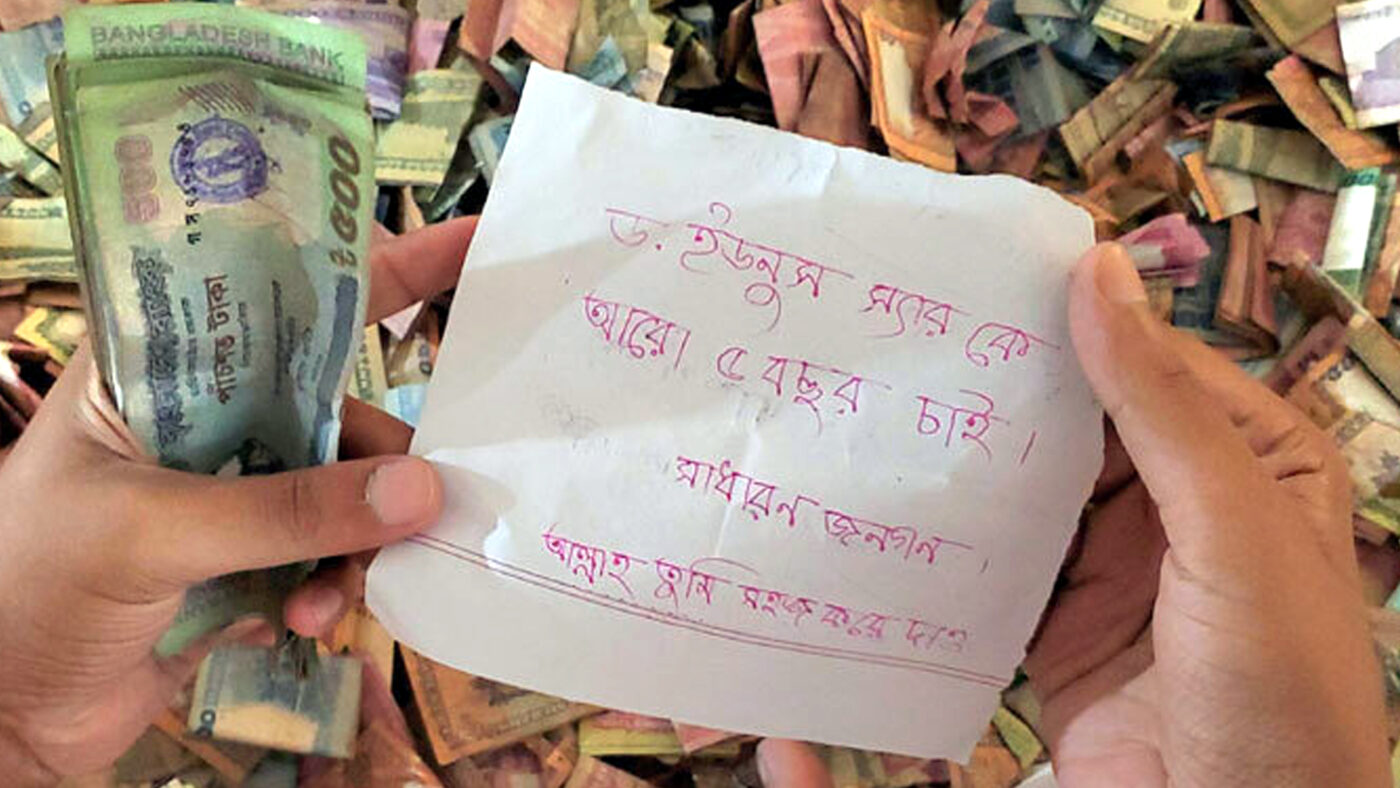 BANGLADESH BANK
500
৳৫০০
পাঁচশত টাকা
ড. ইউনুস স্যার কে
আরো ৫ বছর চাই।
সাধারন জনগন।
আল্লাহ তুমি সহজ করে দাও